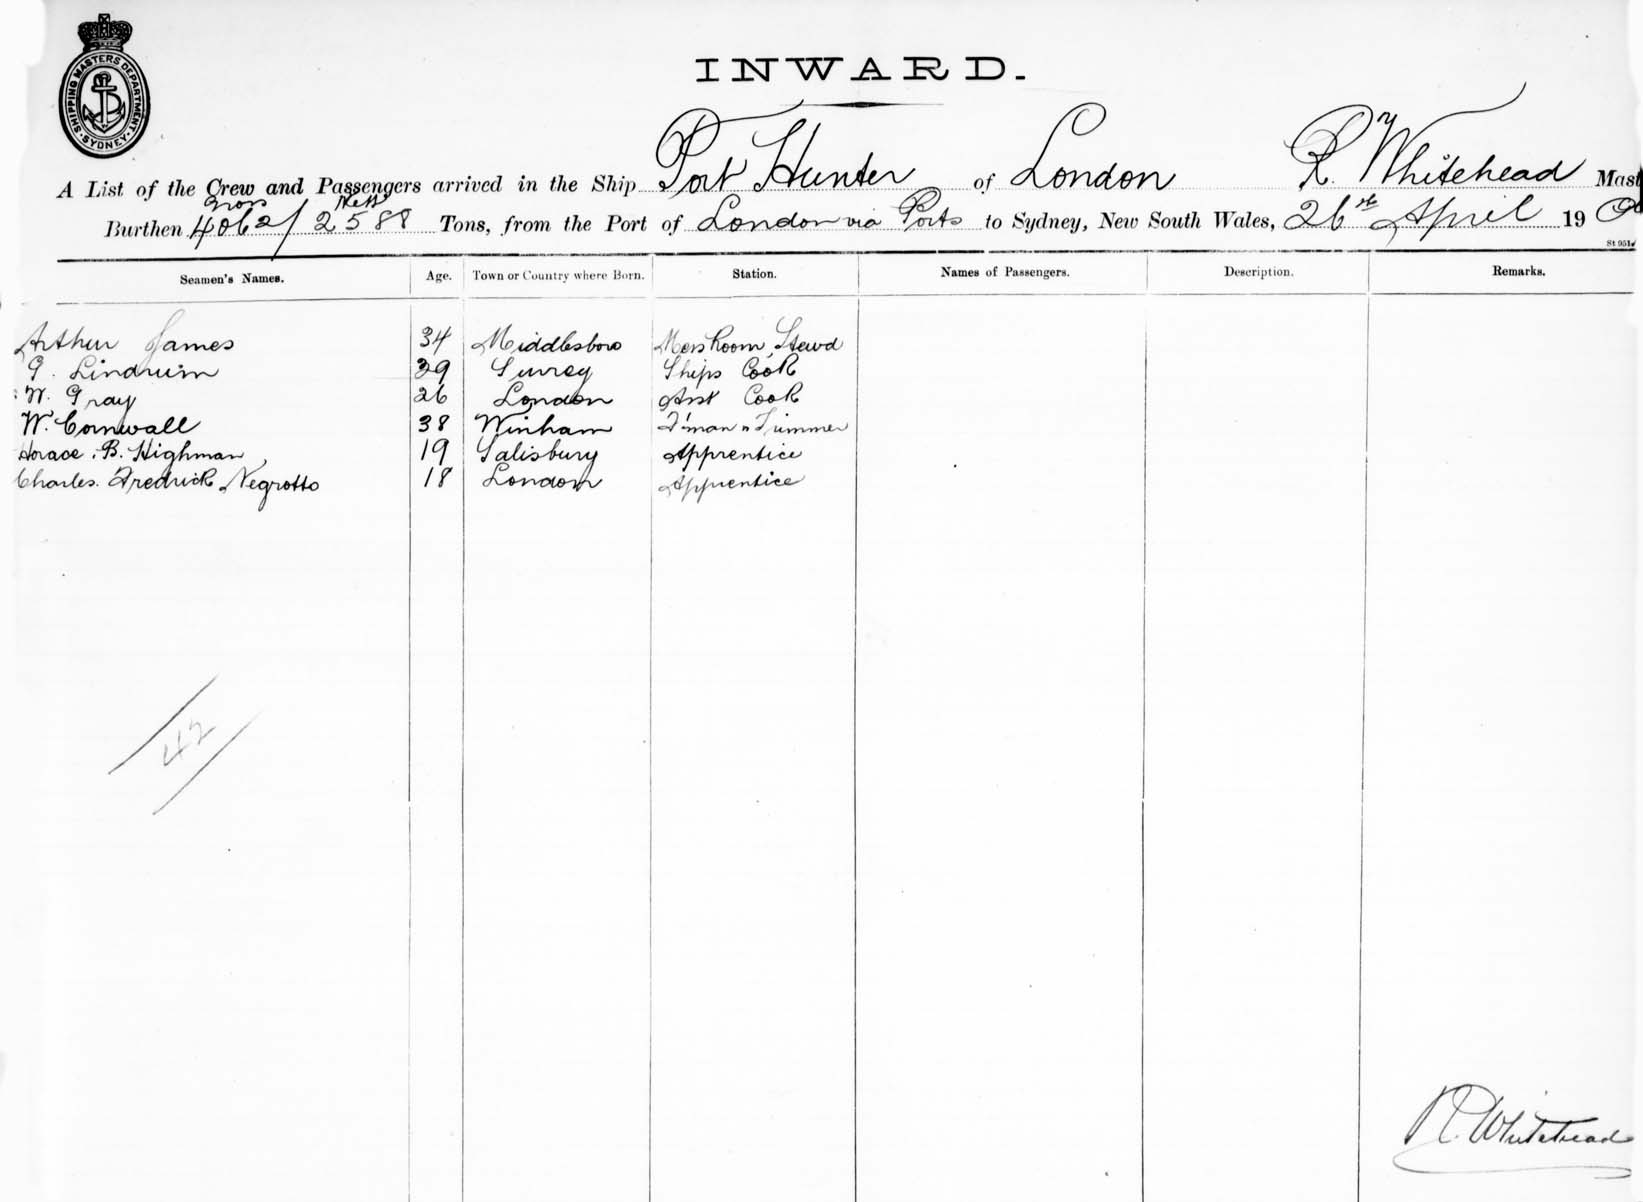 SHIPPING MASTERS DEPARTMENT · SYDNEY ·
INWARD.
A List of the Crew and Passengers arrived in the Ship Port Hunter of London R. Whitehead Mast
Gross Nett
Burthen 4062/2588 Tons, from the Port of London via Ports to Sydney, New South Wales, 26th April 190
St 951
Seamen's Names. Age. Town or Country where Born. Station. Names of Passengers. Description. Remarks.
Arthur James 34 Middlesboro Mess Room Stewd
G. Lindrum 29 Surrey Ships Cook
W. Gray 26 London Asst Cook
W. Cornwall 38 Winham F'man n Trimmer
Horace. B. Highman 19 Salisbury Apprentice
Charles. Fredrick Negrotto 18 London Apprentice
42
R. Whitehead